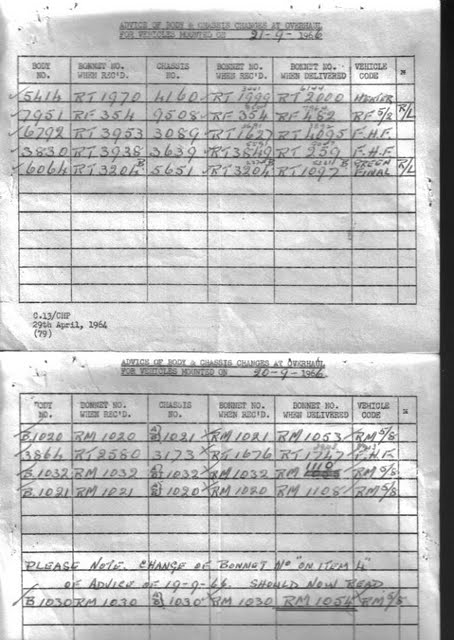 ADVICE OF BODY & CHASSIS CHANGES AT OVERHAUL
FOR VEHICLES MOUNTED ON 21-9-1966
BODY NO. BONNET NO. WHEN REC'D. CHASSIS NO. BONNET NO. WHEN REC'D. BONNET NO. WHEN DELIVERED VEHICLE CODE
5414 RT 1970 4160 RT 1999 RT 2000
7951 RF 354 9508 RF 354 RF 482 RF 5/8 R/L
6792 RT 3953 3089 RT 1627 RT 4095 F.H.F.
3830 RT 3938 3639 RT 3849 RT 259 F.H.F.
6064 RT 3204 B 5651 RT 3204 B RT 1097 B GREEN FINAL R/L
C.13/CHP
29th April, 1964
(79)
ADVICE OF BODY & CHASSIS CHANGES AT OVERHAUL
FOR VEHICLES MOUNTED ON 20-9-1966
BODY NO. BONNET NO. WHEN REC'D. CHASSIS NO. BONNET NO. WHEN REC'D. BONNET NO. WHEN DELIVERED VEHICLE CODE
B.1020 RM 1020 A/B 1021 RM 1021 RM 1053 RM 5/8
3864 RT 2580 3173 RT 1676 RT 1747 F.H.F.
B.1032 RM 1032 A/B 1032 RM 1032 RM 1110 RM 5/8
B.1021 RM 1021 A/B 1020 RM 1020 RM 1108 RM 5/8
PLEASE NOTE. CHANGE OF BONNET No "ON ITEM 4"
OF ADVICE OF 19-9-66. SHOULD NOW READ
B 1030 RM 1030 A/B 1030 RM 1030 RM 1054 RM 5/8